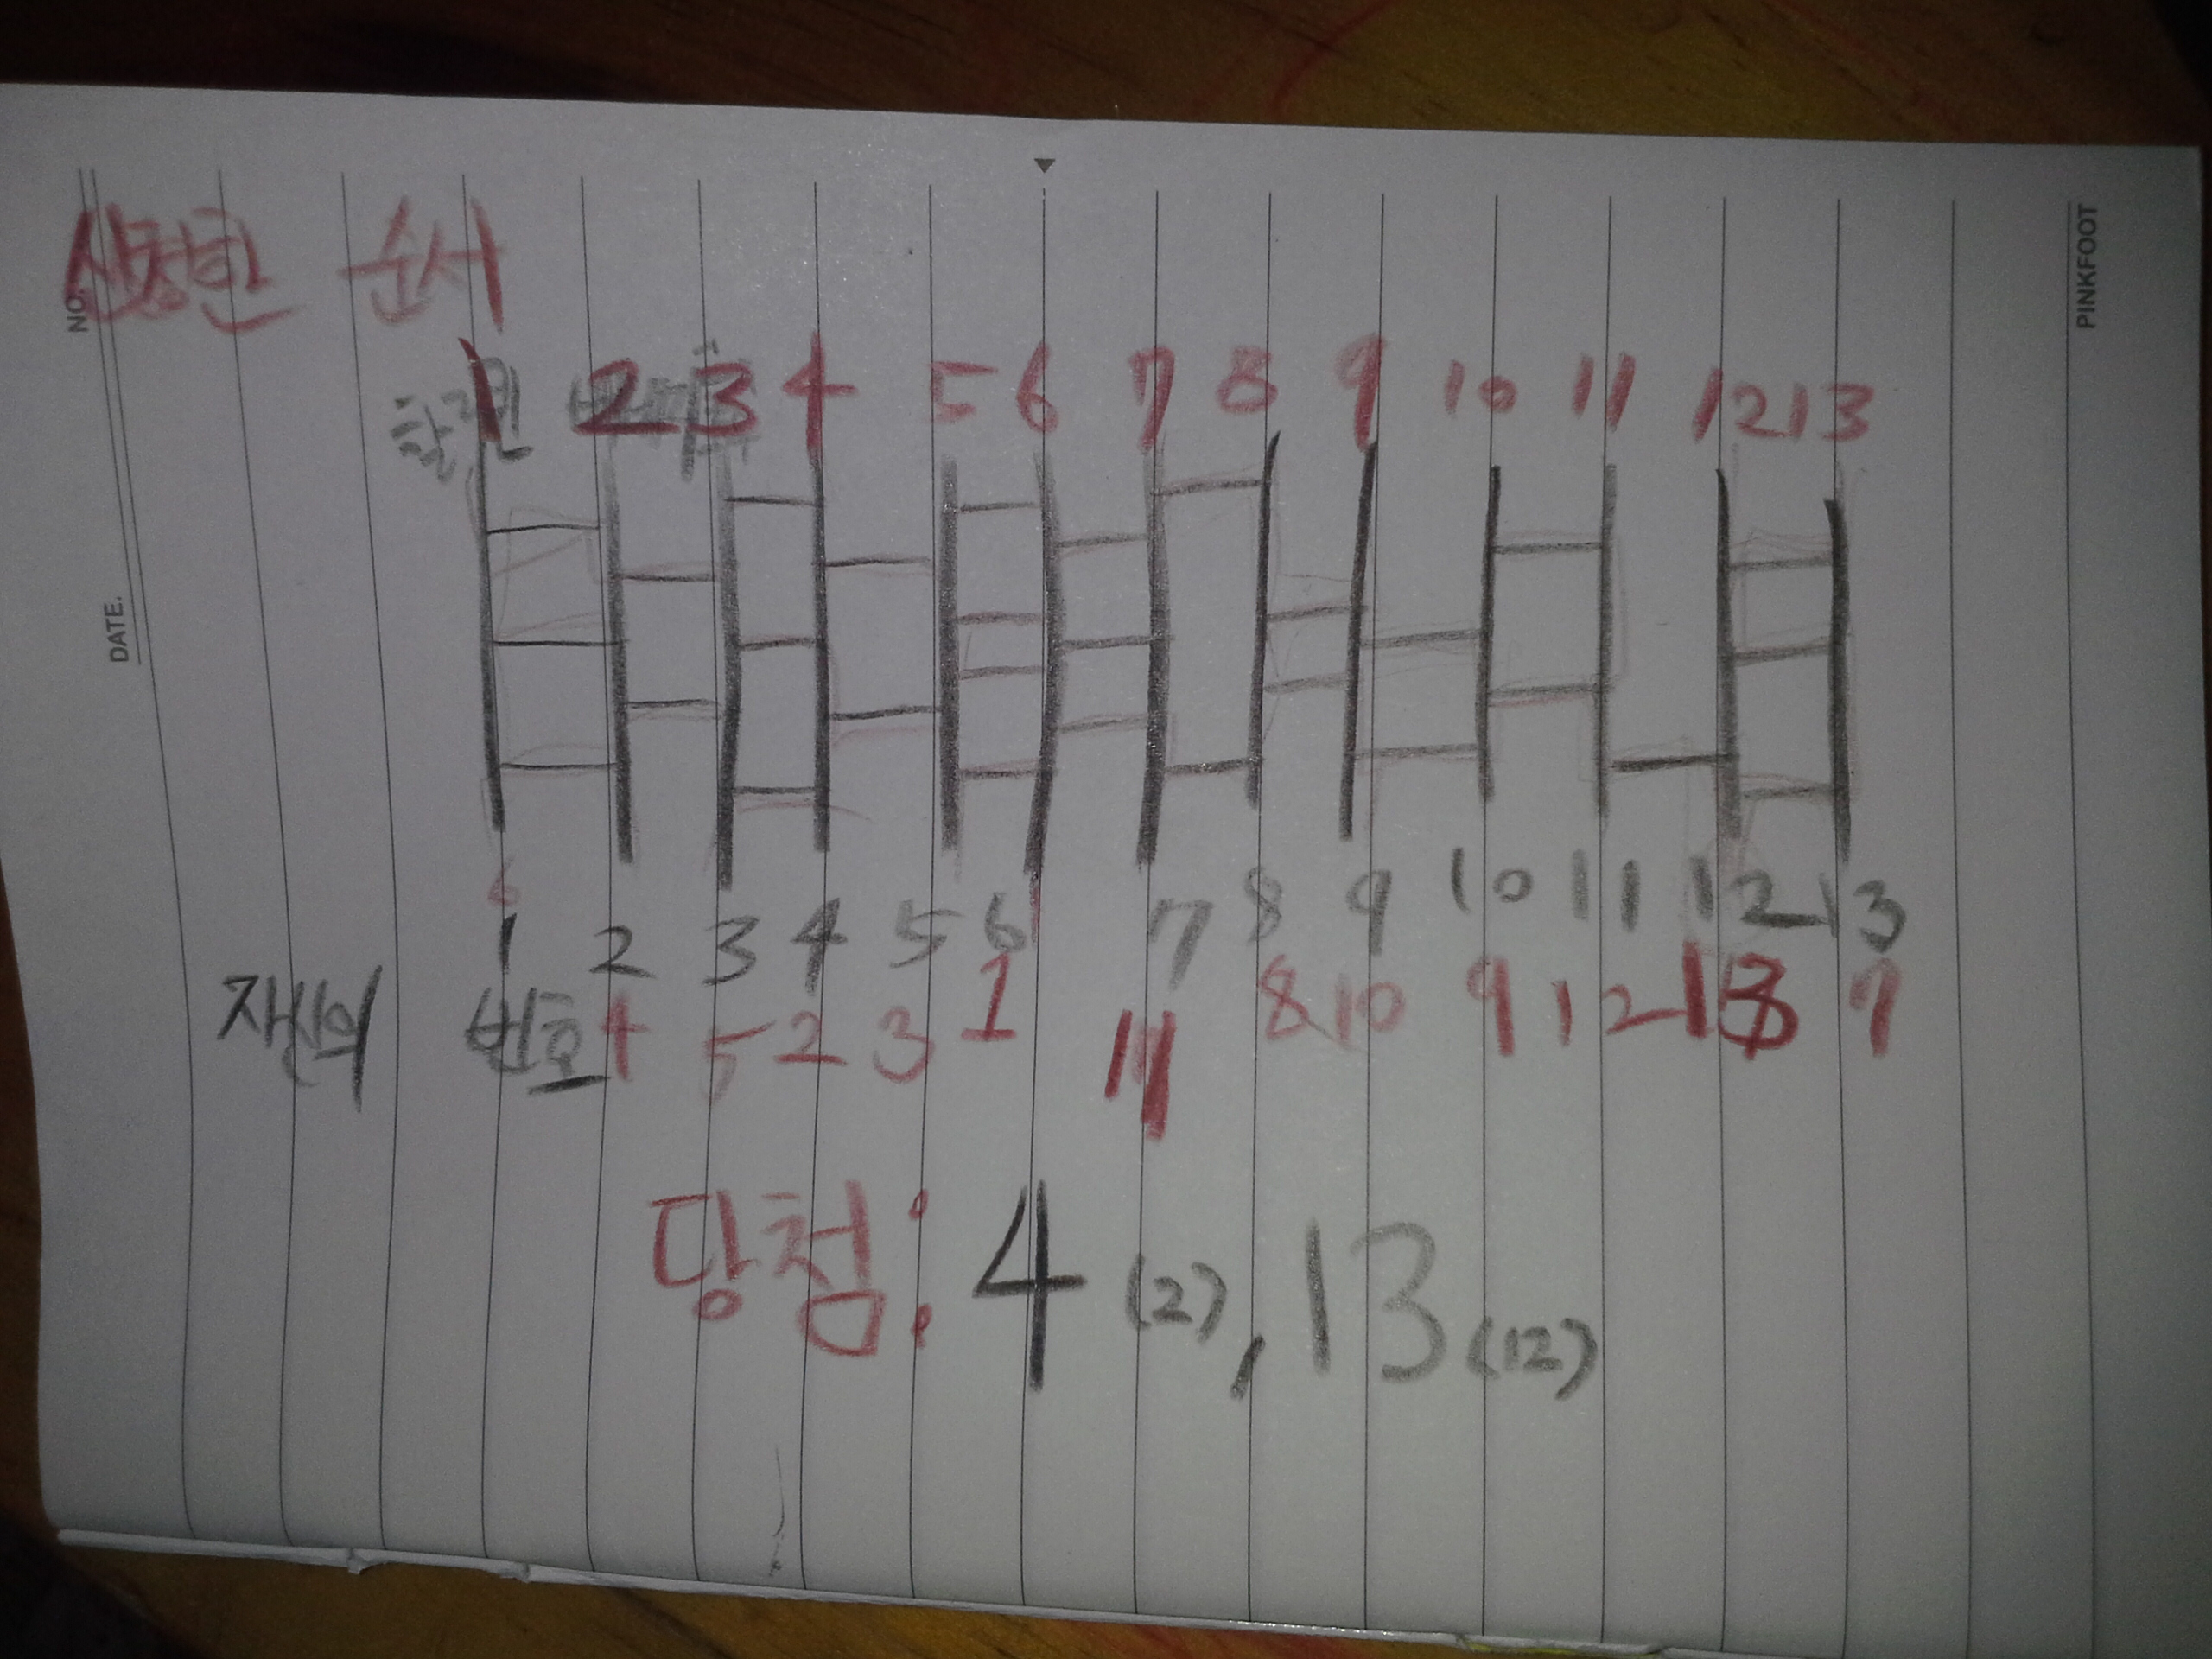 NO.
DATE.
PINKFOOT
신청한 순서
1 2 3 4 5 6 7 8 9 10 11 12 13
6
1 2 3 4 5 6 7 8 9 10 11 12 13
자신의 번호 4 5 2 3 1 11 8 10 9 12 13 7
당첨: 4 (2), 13 (12)